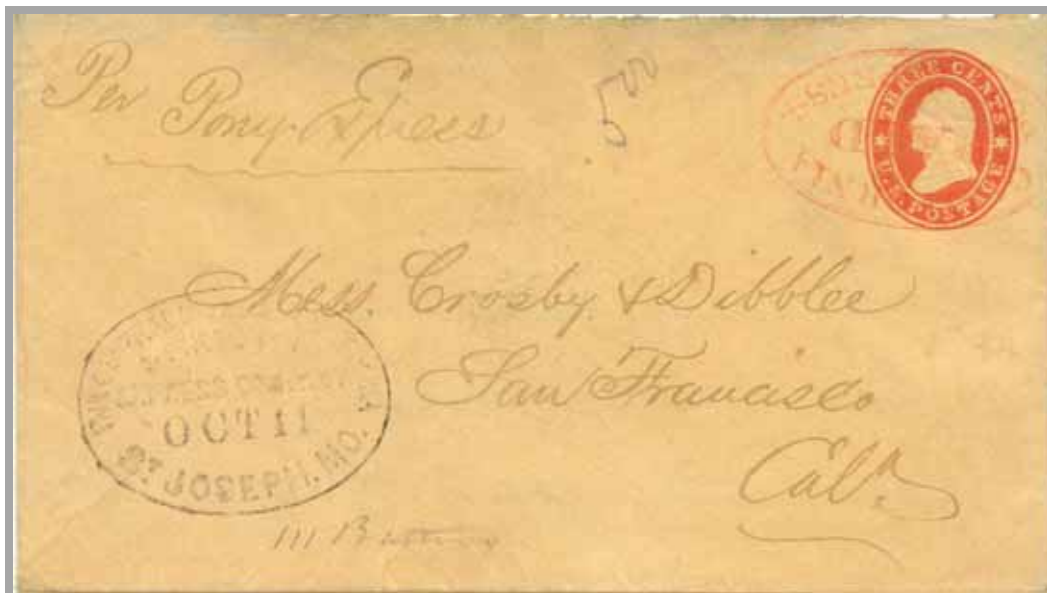 Per Pony Express
5 00
THREE CENTS
U.S. POSTAGE
Mess. Crosby & Dibblee
San Francisco
Cala.
EXPRESS COMPANY
OCT 11
ST JOSEPH. MO.